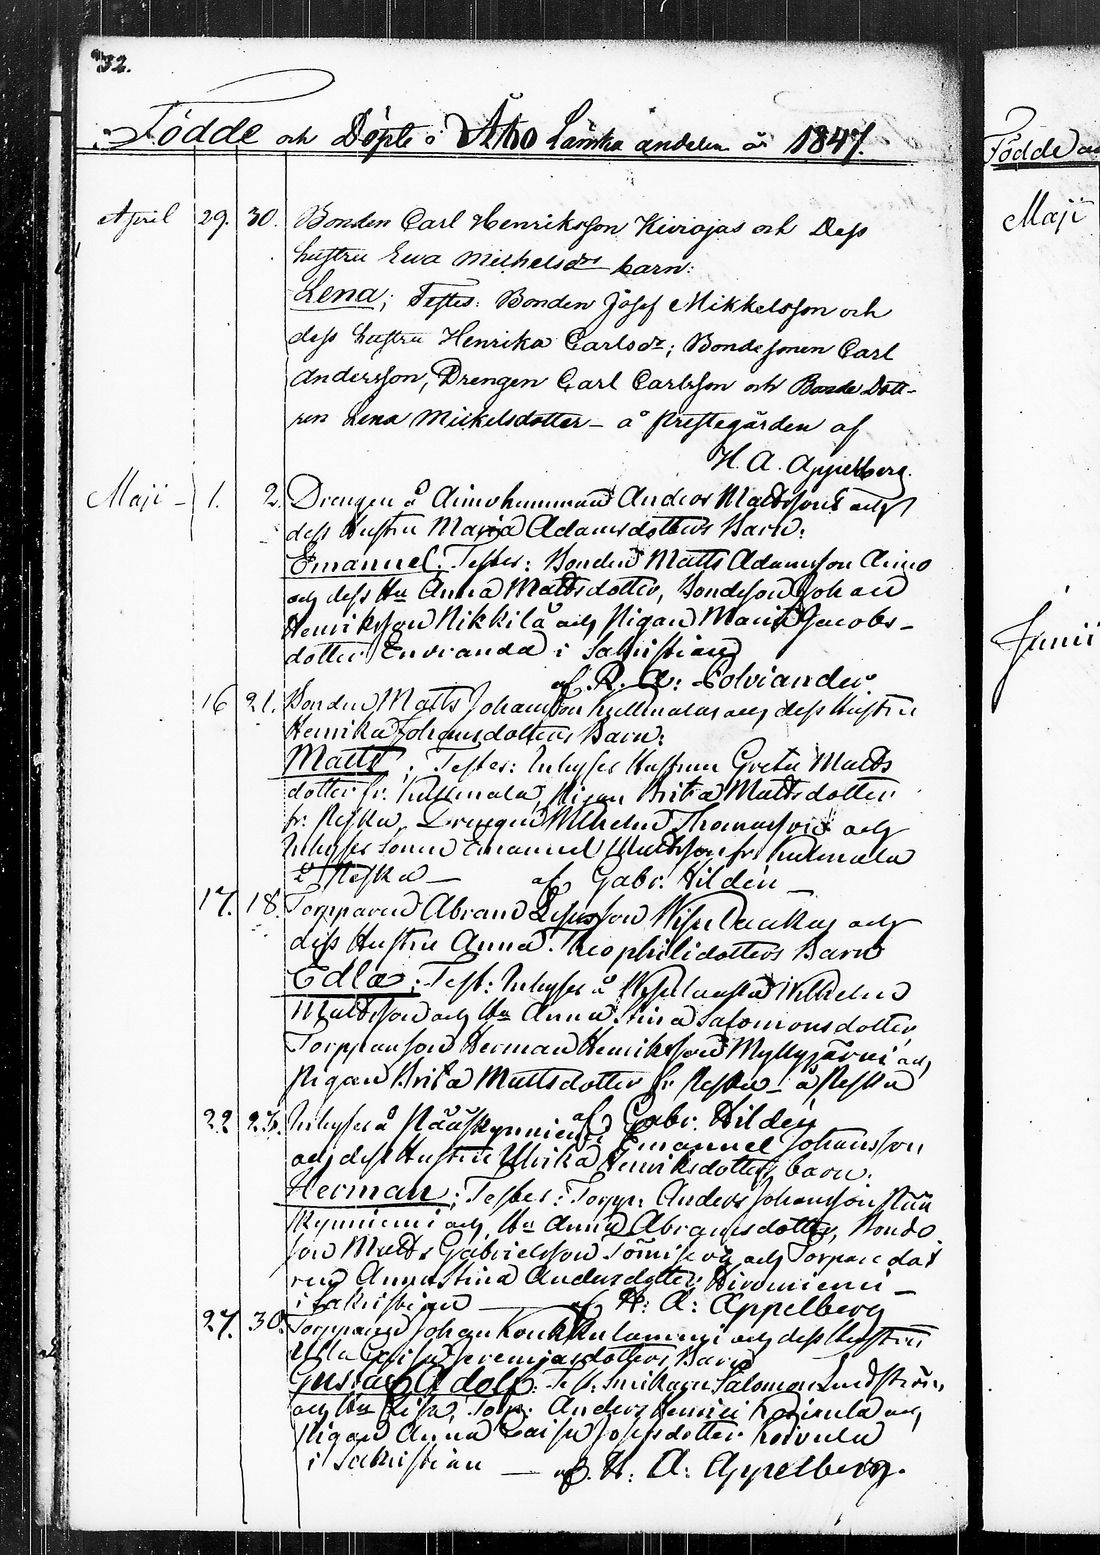 32.
Födde och Döpte i Åbo Länska andelen år 1847.
April 29. 30. Bonden Carl Henriksson Kiviojas och Dess
hustru Ewa Michelsdrs barn:
Lena; Testes: Bonden Josef Mikkelsson och
dess hustru Henrika Carlsdr; Bondesonen Carl
Andersson, Drengen Carl Carlsson och Bonde Dott-
ren Lena Mickelsdotter – å Prestegården af
H. A. Appelberg.
Maji – 1. 2. Drengen å Aimo Anders Mattssons och
dess Hustru Maria Adamsdotters Barn:
Emanuel. Testes: Bonden Matts Adamsson Aimo
och dess Hu Anna Mattsdotter, Bondeson Johan
Henriksson Nikkilä och Pigan Maria Jacobs-
dotter i Sakristian
af R. A: Polviander
16 21. Bonden Matts Johansson och dess Hustru
Henrika Johansdotters Barn:
Matts; Testes: Inhyses Hustrun Greta Matts
dotter fr. Pigan Brita Mattsdotter
fr. Drengen Wilhelm Thomasson och
Inhyses Sonen Emanuel Mattsson fr.
– af Gabr. Hildén –
17. 18. Torpparen Abram och
dess Hustru Anna Theophilidotters Barn
Edla: Test: Inhyses å Wilhelm
Mattsson och Hu Anna Stina Salomonsdotter,
Torpparson Herman Henriksson Myllyjärvi och
Pigan Brita Mattsdotter fr
22 23. Inhyses å af Gabr. Hildén
Emanuel Johansson
och dess Hustru Ulrika Henriksdotters barn:
Herman; Testes: Torpp: Anders Johansson
och Hu Anna Abramsdotter, Bonde
son Matts Gabrielsson och Torpare dot
ren Anna Stina Andersdotter Hironiemi –
i Sakristian — af H: A: Appelberg
27. 30. Torpparen Johan och dess Hustru
Ulla Caisa Jeremiasdotters Barn
Gustaf Adolf: Test: Salomon Lindström,
och Hu Lisa, Torp: Anders Henrici Koivula och
Pigan Anna Caisa Josefsdotter Koivula
i Sakristian — af. H: A: Appelberg.
Födde
Maji
Junii